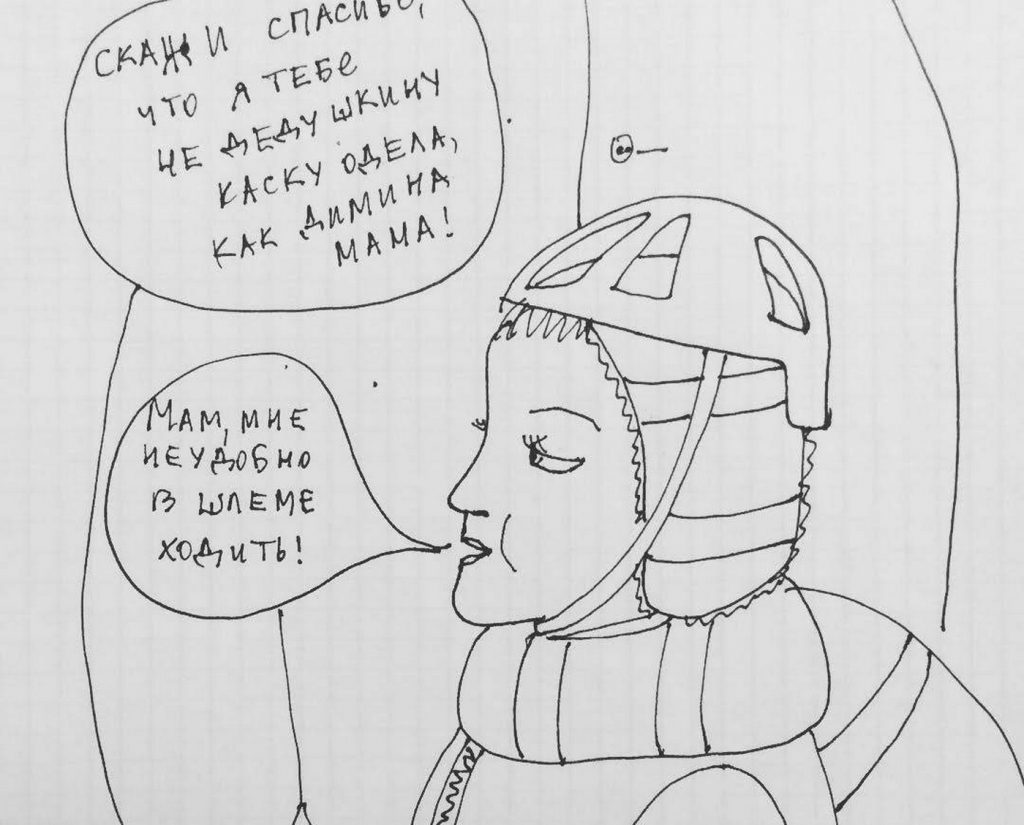 СКАЖИ СПАСИБО,
ЧТО Я ТЕБЕ
НЕ ДЕДУШКИНУ
КАСКУ ОДЕЛА,
КАК ДИМИНА
МАМА!
МАМ, МНЕ
НЕУДОБНО
В ШЛЕМЕ
ХОДИТЬ!